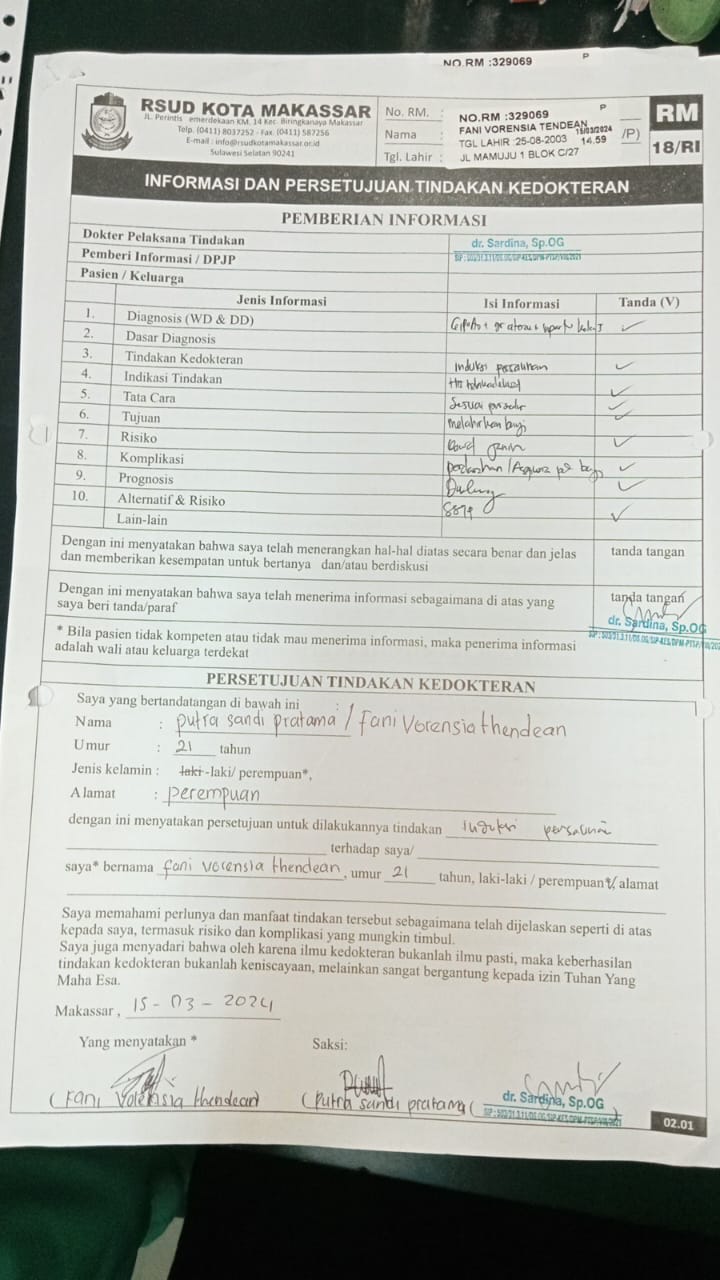 NO.RM :329069 P
RSUD KOTA MAKASSAR
JL. Perintis emerdekaan KM. 14 Kec. Biringkanaya Makassar
Telp. (0411) 8037252 - Fax. (0411) 587256
E-mail : info@rsudkotamakassar.or.id
Sulawesi Selatan 90241
No. RM. :
Nama :
Tgl. Lahir :
NO.RM :329069 P
FANI VORENSIA TENDEAN 15/03/2024
TGL LAHIR :25-08-2003 14.59
JL MAMUJU 1 BLOK C/27
/P)
RM
18/RI
INFORMASI DAN PERSETUJUAN TINDAKAN KEDOKTERAN
PEMBERIAN INFORMASI
Dokter Pelaksana Tindakan dr. Sardina, Sp.OG
Pemberi Informasi / DPJP
Pasien / Keluarga
Jenis Informasi Isi Informasi Tanda (V)
1. Diagnosis (WD & DD) ✓
2. Dasar Diagnosis
3. Tindakan Kedokteran Induksi persalinan ✓
4. Indikasi Tindakan ✓
5. Tata Cara Sesuai prosedur ✓
6. Tujuan melahirkan bayi ✓
7. Risiko Gawat janin ✓
8. Komplikasi ✓
9. Prognosis ✓
10. Alternatif & Risiko ✓
Lain-lain
Dengan ini menyatakan bahwa saya telah menerangkan hal-hal diatas secara benar dan jelas
dan memberikan kesempatan untuk bertanya dan/atau berdiskusi
tanda tangan
Dengan ini menyatakan bahwa saya telah menerima informasi sebagaimana di atas yang
saya beri tanda/paraf
tanda tangan
dr. Sardina, Sp.OG
* Bila pasien tidak kompeten atau tidak mau menerima informasi, maka penerima informasi
adalah wali atau keluarga terdekat
PERSETUJUAN TINDAKAN KEDOKTERAN
Saya yang bertandatangan di bawah ini :
Nama : putra sandi pratama / Fani Vorensia thendean
Umur : 21 tahun
Jenis kelamin : laki-laki/ perempuan*,
Alamat : perempuan
dengan ini menyatakan persetujuan untuk dilakukannya tindakan Induksi persalinan
terhadap saya/
saya* bernama fani vorensia thendean, umur 21 tahun, laki-laki / perempuan*, alamat
Saya memahami perlunya dan manfaat tindakan tersebut sebagaimana telah dijelaskan seperti di atas
kepada saya, termasuk risiko dan komplikasi yang mungkin timbul.
Saya juga menyadari bahwa oleh karena ilmu kedokteran bukanlah ilmu pasti, maka keberhasilan
tindakan kedokteran bukanlah keniscayaan, melainkan sangat bergantung kepada izin Tuhan Yang
Maha Esa.
Makassar, 15 - 03 - 2024
Yang menyatakan * Saksi:
(Fani Vorensia thendean) (putra sandi pratama) ( dr. Sardina, Sp.OG )
02.01